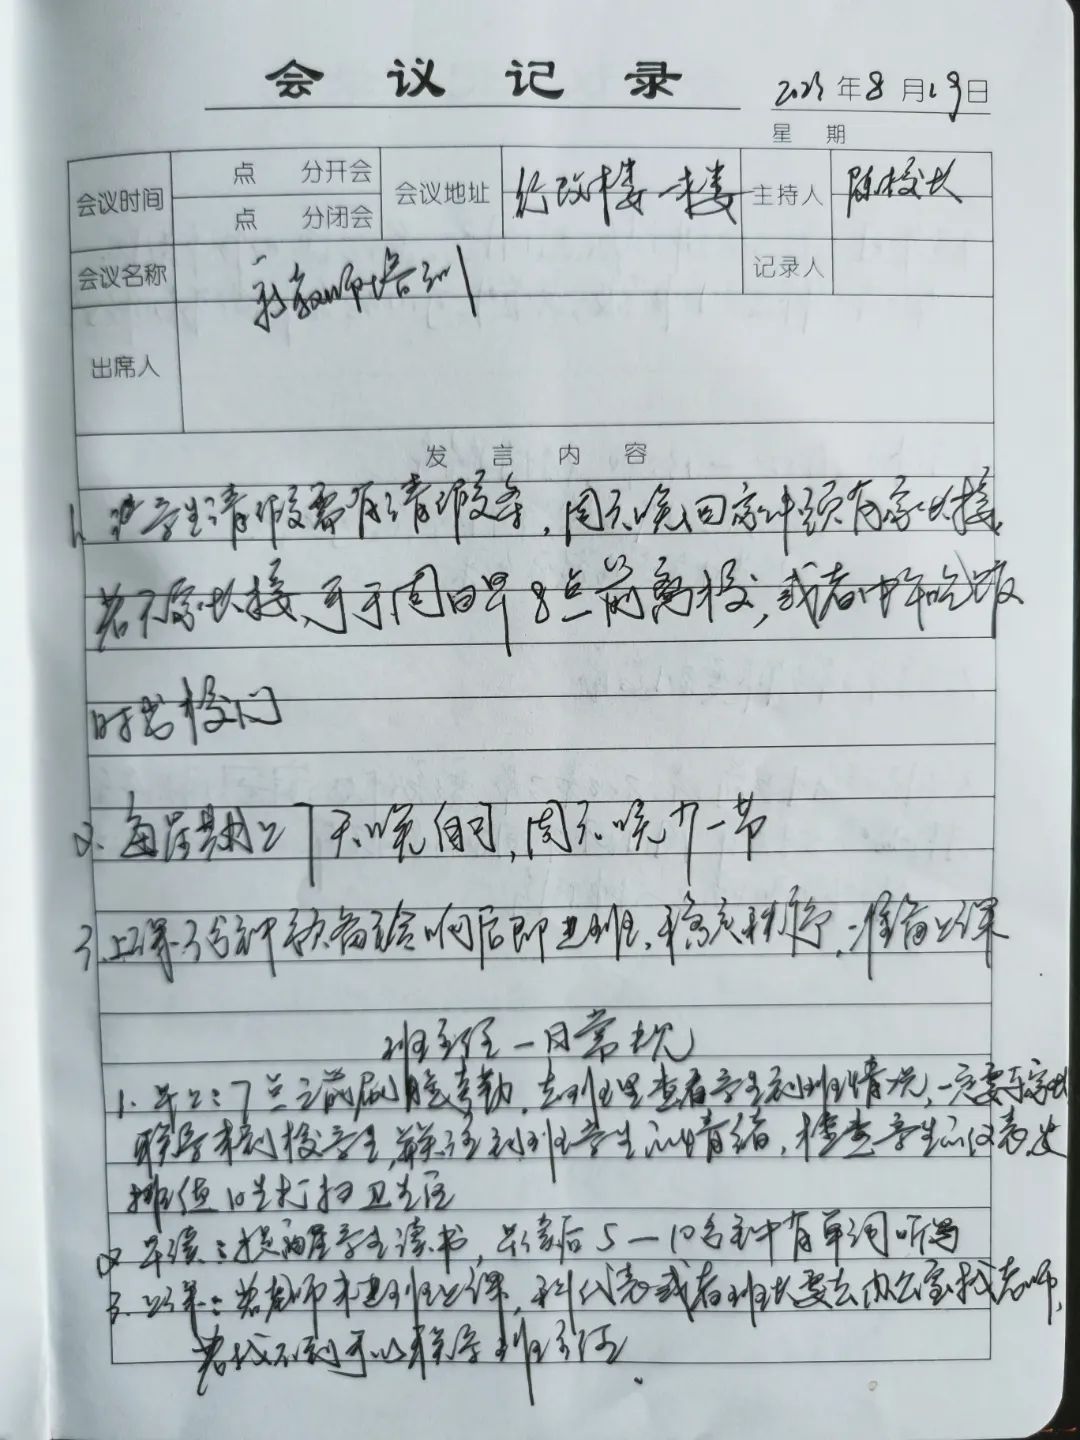 会议记录
2023年8月19日
星期
会议时间 点 分开会 会议地址 行政楼一楼 主持人 陈校长
点 分闭会
会议名称 新教师培训 记录人
出席人
发言内容
1. 学生请假需有请假条,周天晚回家必须有家长接,
若不家长接,可于周日早8点前离校,或者中午吃饭
时出校门
2. 每星期上7天晚自习,周天晚加一节
3. 上课3分钟预备铃响后即进班,稳定秩序,准备上课
班主任一日常规
1. 早上:7点之前刷脸考勤,去班里查看学生到班情况,一定要与家长
联系未到校学生,关注到班学生的情绪,检查学生的仪表,安
排值日生打扫卫生区
2. 早读:提醒学生读书,早读后5—10分钟有单词听写
3. 上课:若老师未进班上课,科代表或者班长要去办公室找老师,
若找不到可以联系班主任.